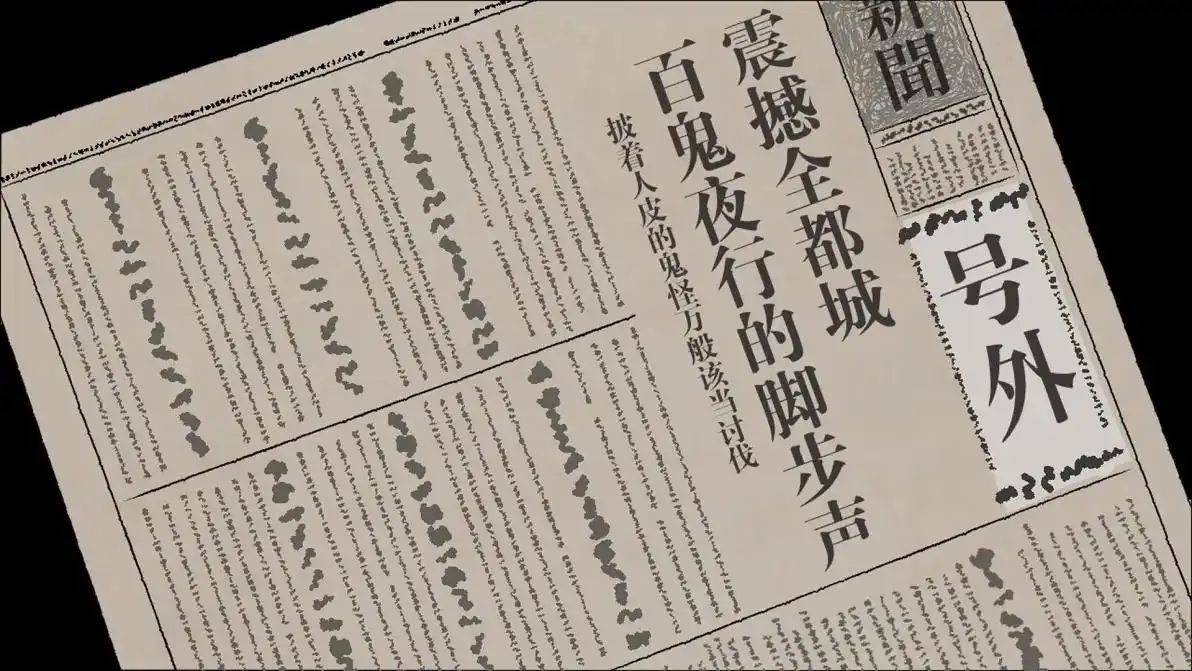 新聞
号外
震撼全都城
百鬼夜行的脚步声
披着人皮的鬼怪万般该当讨伐